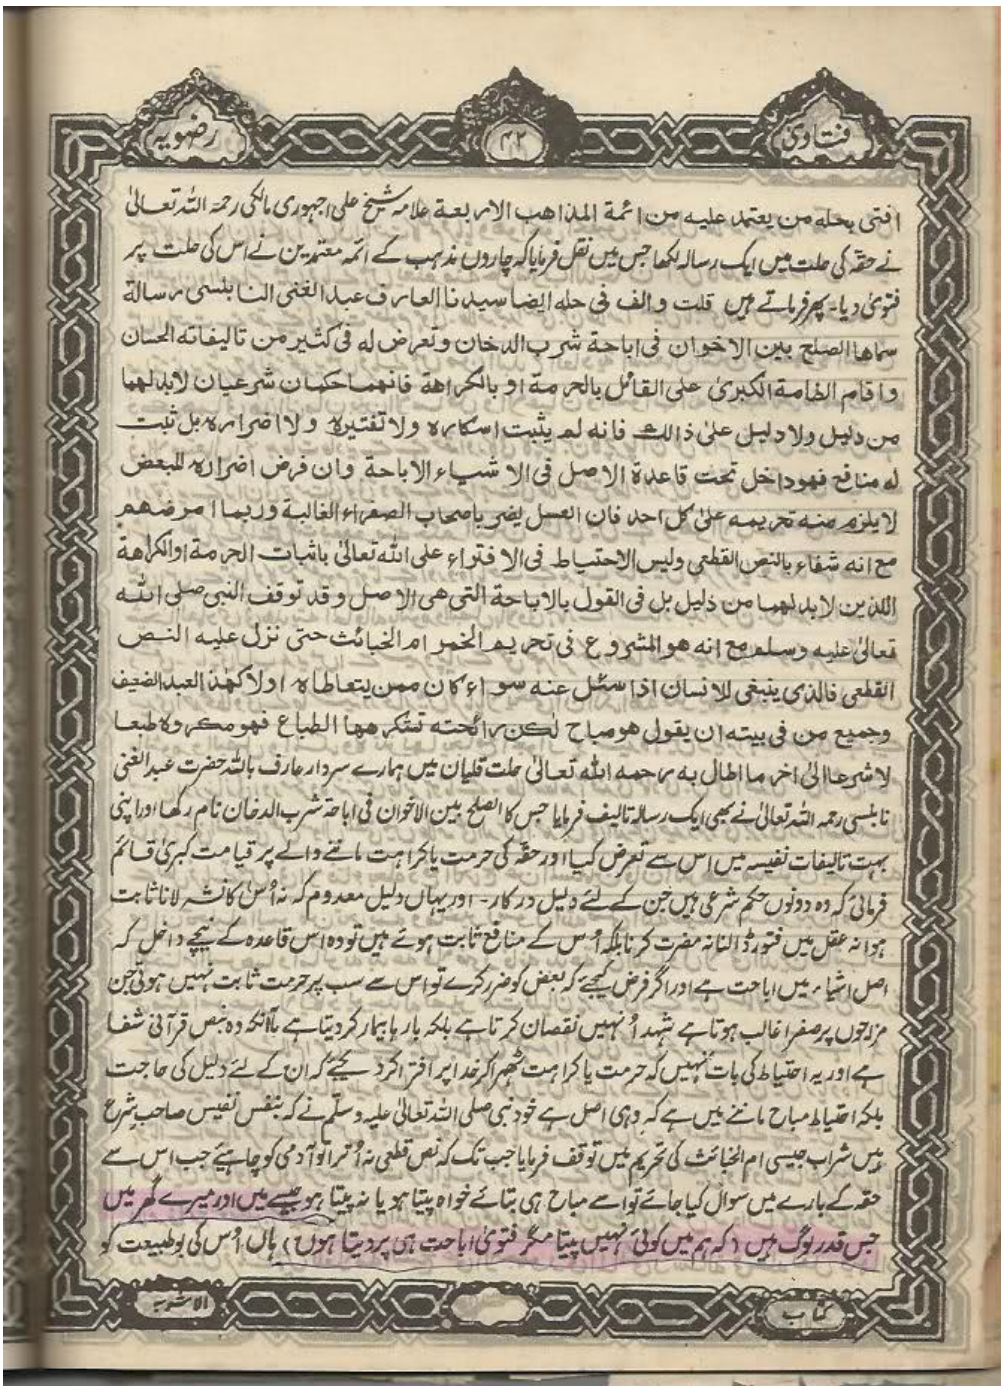 فتاوی ۴۲ رضویہ
افتی بحله من یعتمد علیه من ائمة المذاهب الاربعة علامہ شیخ علی اجہوری مالکی رحمۃ اللہ تعالیٰ
نے حقہ کی حلت میں ایک رسالہ لکھا جس میں نقل فرمایا کہ چاروں مذہب کے ائمہ معتمدین نے اس کی حلت پر
فتویٰ دیا۔ پھر فرماتے ہیں قلت و الف فی حله ایضا سیدنا العارف عبد الغنی النابلسی رسالة
سماها الصلح بین الاخوان فی اباحة شرب الدخان و تعرض له فی کثیر من تالیفاته الحسان
و اقام الطامة الکبریٰ علی القائل بالحرمة او بالکراهة فانهما حکمان شرعیان لابد لهما
من دلیل ولا دلیل علیٰ ذالك فانه لم یثبت اسکاره ولا تفتیره ولا اضراره بل ثبت
له منافع فهو داخل تحت قاعدة الاصل فی الاشیاء الاباحة وان فرض اضراره للبعض
لا یلزم منه تحریمه علیٰ کل احد فان العسل یضر باصحاب الصفراء الغالبة و ربما امرضهم
مع انه شفاء بالنص القطعی ولیس الاحتیاط فی الافتراء علی اللہ تعالیٰ باثبات الحرمة او الکراهة
اللذین لابد لهما من دلیل بل فی القول بالاباحة التی هی الاصل و قد توقف النبی صلی اللہ
تعالیٰ علیه وسلم مع انه هو المشروع فی تحریم الخمر ام الخبائث حتی نزل علیه النص
القطعی فالذی ینبغی للانسان اذا سئل عنه سواء کان ممن یتعاطاه اولا کهذا العبد الضعیف
وجمیع من فی بیته ان یقول هو مباح لکن رائحته تستکرهها الطباع فهو مکروہ طبعا
لا شرعا الیٰ اخر ما اطال به رحمه اللہ تعالیٰ حلت قلیان میں ہمارے سردار عارف باللہ حضرت عبد الغنی
نابلسی رحمہ اللہ تعالیٰ نے بھی ایک رسالہ تالیف فرمایا جس کا الصلح بین الاخوان فی اباحة شرب الدخان نام رکھا اور اپنی
بہت تالیفات نفیسہ میں اس سے تعرض کیا اور حقہ کی حرمت یا کراہت ماننے والے پر قیامت کبریٰ قائم
فرمائی کہ وہ دونوں حکم شرعی ہیں جن کے لئے دلیل درکار۔ اور یہاں دلیل معدوم کہ نہ اُس کا نشہ لانا ثابت
ہوا نہ عقل میں فتور ڈالنا نہ مضرت کرنا بلکہ اُس کے منافع ثابت ہوئے ہیں تو وہ اس قاعدہ کے نیچے داخل کہ
اصل اشیاء میں اباحت ہے اور اگر فرض کیجے کہ بعض کو ضرر کرے تو اس سے سب پر حرمت ثابت نہیں ہوتی جن
مزاجوں پر صفرا غالب ہوتا ہے شہد اُنہیں نقصان کرتا ہے بلکہ بارہا بیمار کر دیتا ہے باآنکہ وہ بنص قرآنی شفا
ہے اور یہ احتیاط کی بات نہیں کہ حرمت یا کراہت ٹھہرا کر خدا پر افترا کر دیجئے کہ ان کے لئے دلیل کی حاجت
بلکہ احتیاط مباح ماننے میں ہے کہ وہی اصل ہے خود نبی صلی اللہ تعالیٰ علیہ وسلم نے کہ بنفس نفیس صاحب شرع
ہیں شراب جیسی ام الخبائث کی تحریم میں توقف فرمایا جب تک کہ نص قطعی نہ اُترا تو آدمی کو چاہیئے جب اس سے
حقہ کے بارے میں سوال کیا جائے تو اسے مباح ہی بتائے خواہ پیتا ہو یا نہ پیتا ہو جیسے میں اور میرے گھر میں
جس قدر لوگ ہیں (کہ ہم میں کوئی نہیں پیتا مگر فتویٰ اباحت ہی پر دیتا ہوں) ہاں اُس کی بو طبیعت کو
کتاب الاشربہ